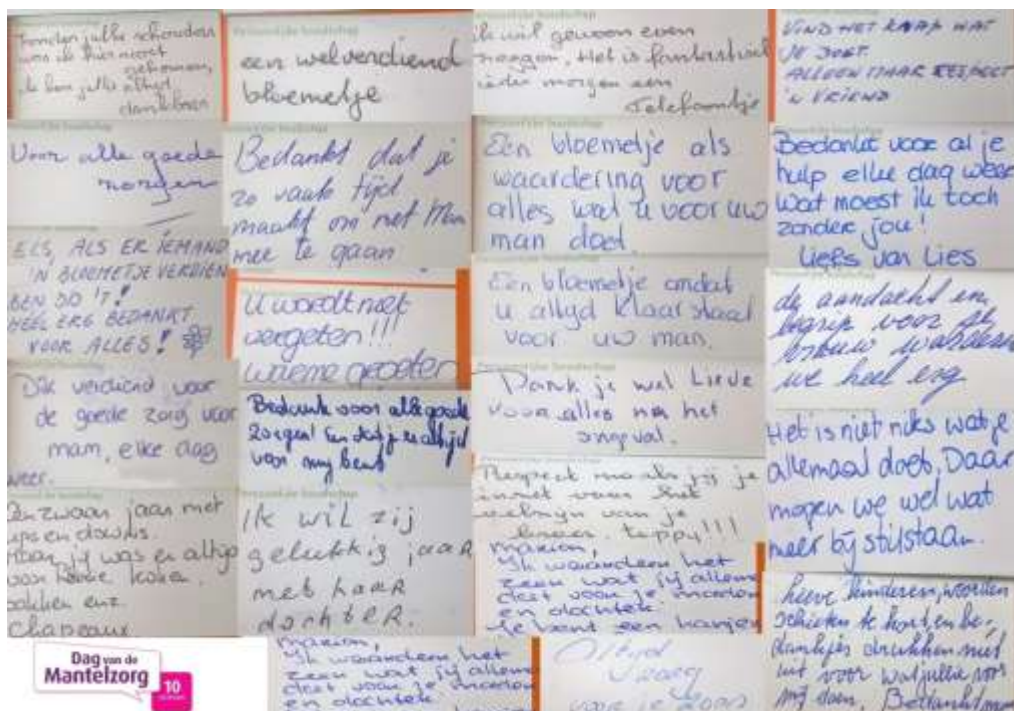 zonder jullie schouders
was ik hier nooit
gekomen,
ik ben jullie altijd
dankbaar
Voor alle goede
zorgen
ELS, ALS ER IEMAND
'N BLOEMETJE VERDIEN
BEN JO 'T!
HEEL ERG BEDANKT
VOOR ALLES!
Dik verdiend voor
de goede zorg voor
mam, elke dag
weer.
Een zwaar jaar met
ups en downs.
Maar jij was er altijd
voor
bakken enz.
Chapeaux
een welverdiend
bloemetje
Bedankt dat je
zo vaak tijd
maakt om met Man
mee te gaan
U wordt niet
vergeten!!!
warme groeten
Bedankt voor alle goede
zorgen! En dat je er altijd
voor mij bent
Ik wil zij
gelukkig jaar
met haar
dochter.
ik wil gewoon even
zeggen. Het is fantastisch
ieder morgen een
telefoontje
Een bloemetje als
waardering voor
alles wat u voor uw
man doet.
Een bloemetje omdat
u altyd klaarstaat
voor uw man.
Dank je wel Lieve
voor alles na het
ongeval.
Respect zoals jij je
inzet voor het
welzijn van je
broer. toppy!!!
Marion,
Ik waardeer het
zeer wat jij allema
doet voor je
en dochter.
Je bent een kanjer
VIND HET KNAP WAT
JE DOET.
ALLEEN MAAR RESPECT
'N VRIEND
Bedankt voor al je
hulp elke dag weer
wat moest ik toch
zonder jou!
Liefs van Lies
de aandacht en
begrip voor je
vrouw waarderen
we heel erg
Het is niet niks wat je
allemaal doet. Daar
mogen we wel wat
meer bij stilstaan.
Lieve kinderen, woorden
schieten te kort en be-
dankjes drukken niet
uit voor wat jullie voor
mij doen, Bedankt
Dag van de
Mantelzorg
10
Marion,
Ik waardeer het
zeer wat jij allema
doet voor je
en dochter.